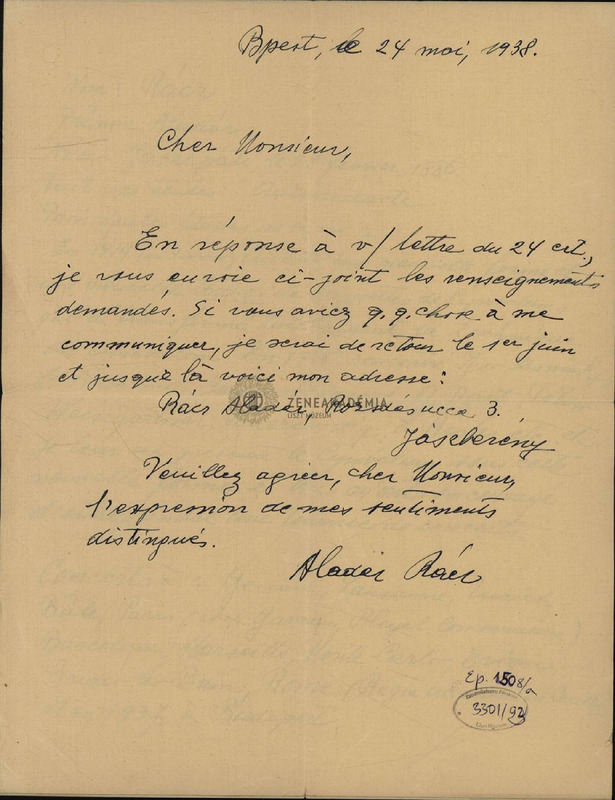 Bpest, le 24 mai, 1938.
Cher Monsieur,
En réponse à v/ lettre du 24 crt.,
je vous envoie ci-joint les renseignements
demandés. Si vous aviez q.q. chose à me
communiquer, je serai de retour le 1er juin
et jusque là voici mon adresse:
Rács Aladár, ucca 3.
ZENEAKADÉMIA
LISZT MÚZEUM
Jászberény
Veuillez agréer, cher Monsieur,
l'expression de mes sentiments
distingués.
Aladár Rács
Ep. 1508/a
3301/93